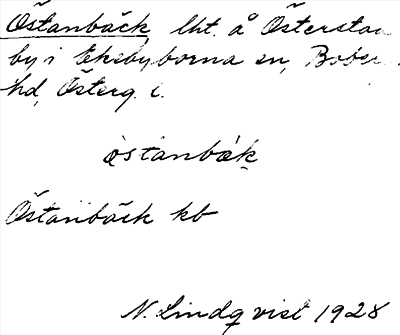 Östanbäck lht. å Österstad
by i Ekebyborna sn, Bober
hd, Österg. l.
östanbäk
Östanbäck kb
N. Lindqvist 1928